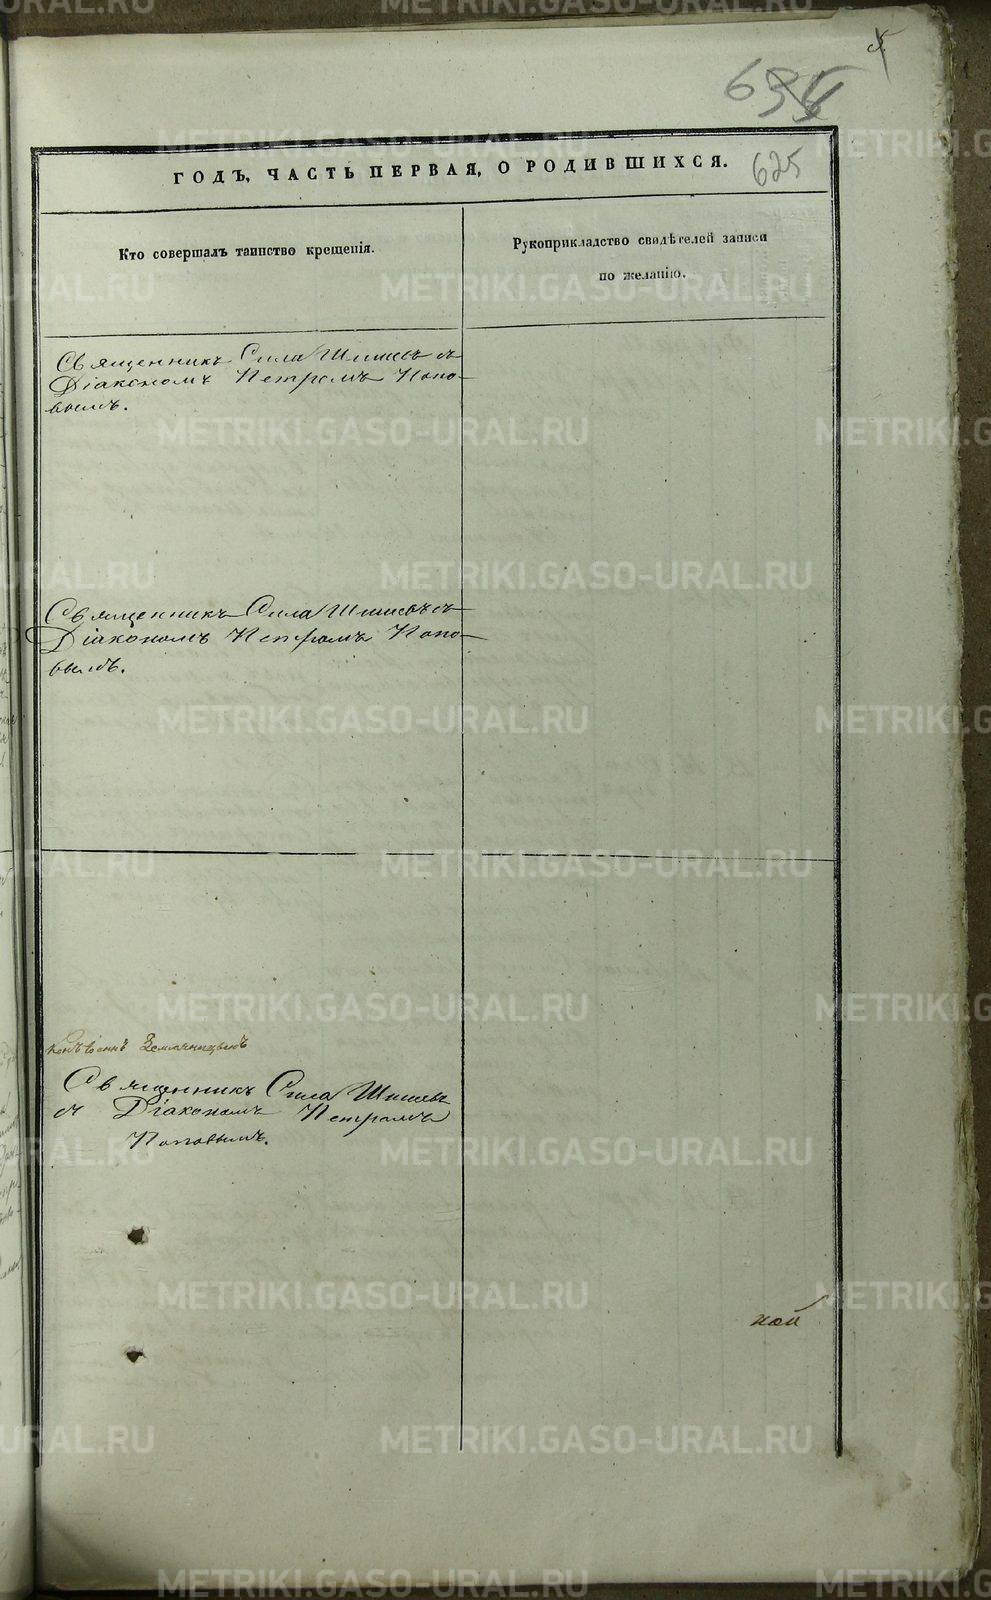 625
ГОДЪ, ЧАСТЬ ПЕРВАЯ, О РОДИВШИХСЯ.
Кто совершалъ таинство крещенія.
Рукоприкладство свидѣтелей записи
по желанію.
Священникъ Сила Шишевъ съ
Діакономъ Петромъ Попо-
вымъ.
Священникъ Сила Шишевъ съ
Діакономъ Петромъ Попо-
вымъ.
Священникъ Сила Шишевъ
съ Діакономъ Петромъ
Поповымъ.
ной
METRIKI.GASO-URAL.RU